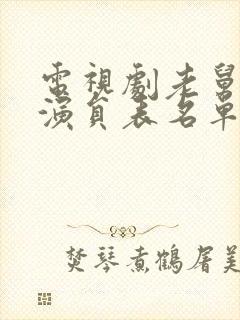 電視劇老舅
演員表名單
焚琴煮鶴屠美